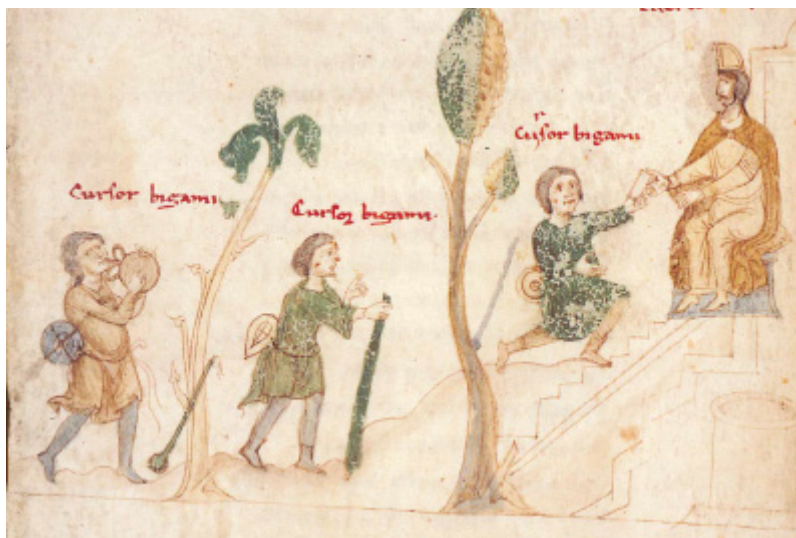 Cursor bigami
Cursor bigami
Cursor bigami